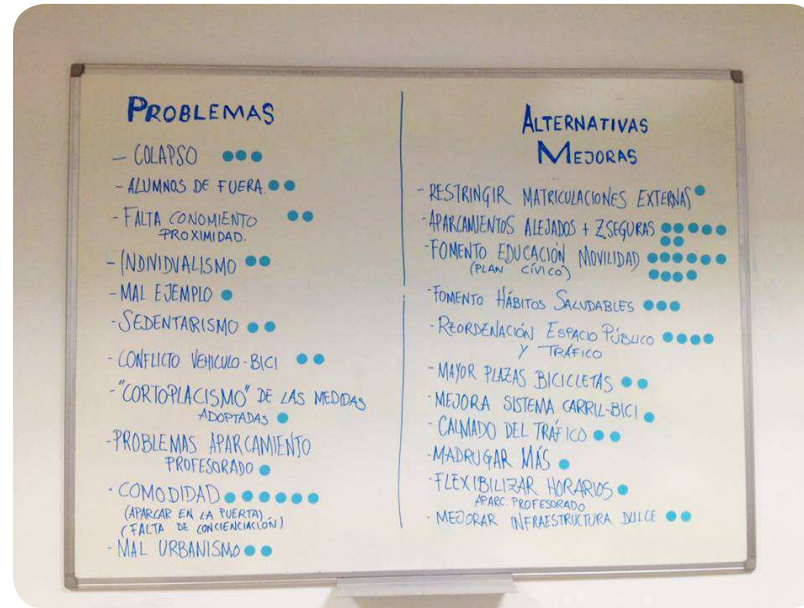 PROBLEMAS
- COLAPSO
- ALUMNOS DE FUERA.
- FALTA CONOMIENTO
PROXIMIDAD.
- INDIVIDUALISMO
- MAL EJEMPLO
- SEDENTARISMO
- CONFLICTO VEHICULO-BICI
- "CORTOPLACISMO" DE LAS MEDIDAS
ADOPTADAS
- PROBLEMAS APARCAMIENTO
PROFESORADO
- COMODIDAD
(APARCAR EN LA PUERTA)
(FALTA DE CONCIENCIACIÓN)
- MAL URBANISMO
ALTERNATIVAS
MEJORAS
- RESTRINGIR MATRICULACIONES EXTERNAS
- APARCAMIENTOS ALEJADOS + Z.SEGURAS
- FOMENTO EDUCACIÓN MOVILIDAD
(PLAN CÍVICO)
- FOMENTO HÁBITOS SALUDABLES
- REORDENACIÓN ESPACIO PÚBLICO
Y TRÁFICO
- MAYOR PLAZAS BICICLETAS
- MEJORA SISTEMA CARRIL-BICI
- CALMADO DEL TRÁFICO
- MADRUGAR MÁS
- FLEXIBILIZAR HORARIOS
APARC. PROFESORADO
- MEJORAR INFRAESTRUCTURA DULCE